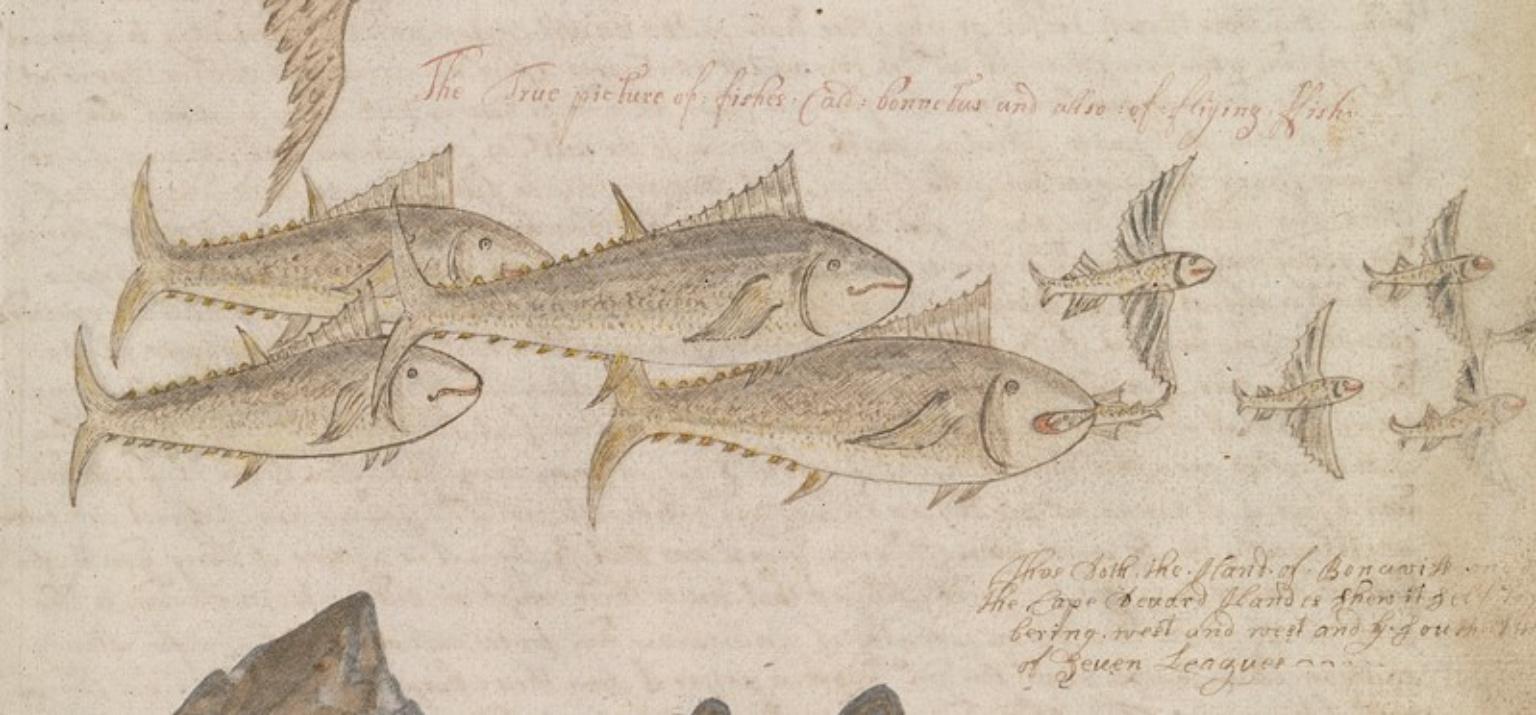 The True picture of: fishes: Cald: bonnetus and also: of: fliying: ffish:
Thus Doth: the: Iland: of: Bonavist
the Cape Devard Ilandes shew it
bering: west and west and
of Seven Leagues